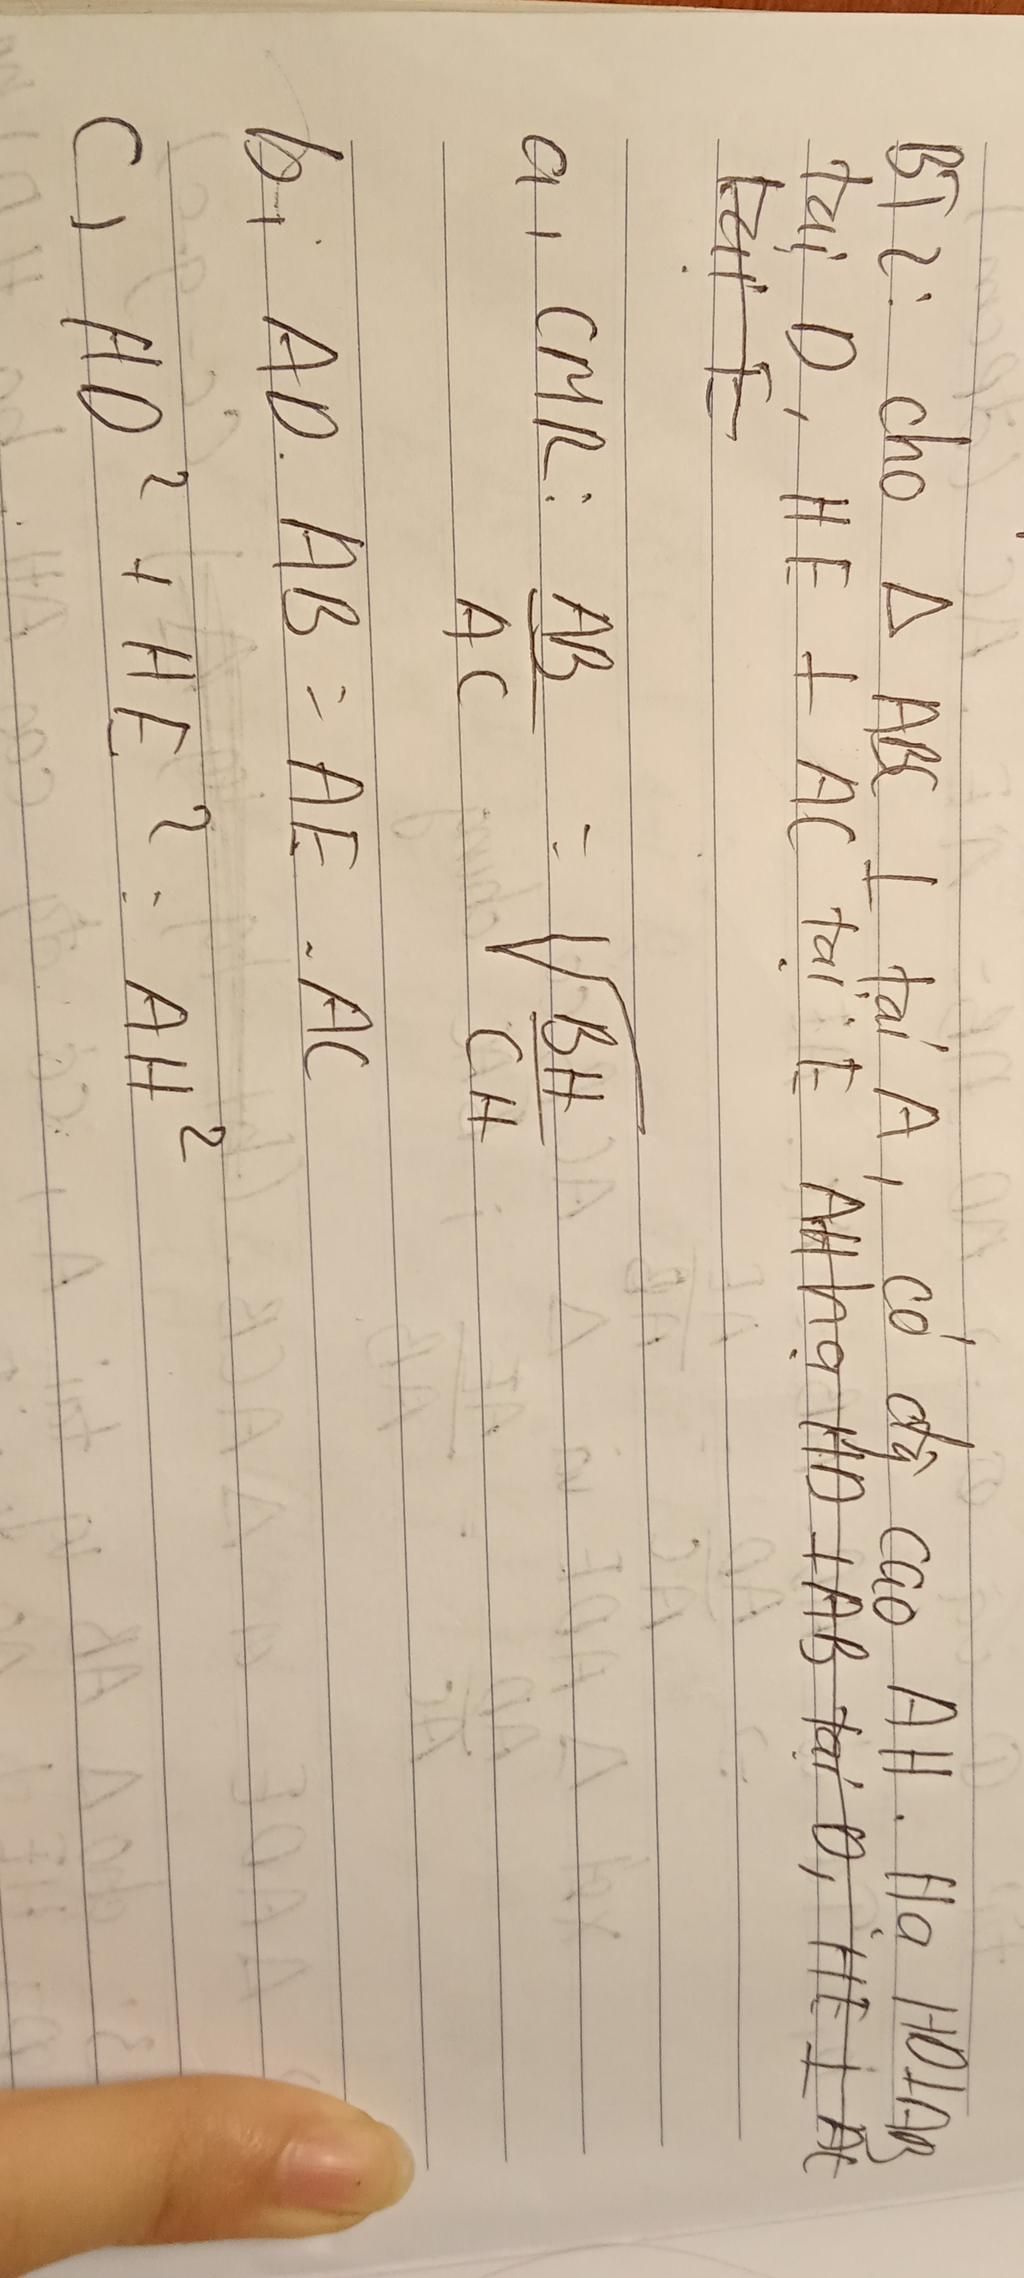 BT2: cho Δ ABC ⊥ tại A, có đg cao AH. Hạ HD⊥AB
tại D, HE ⊥ AC tại E AH hạ HD ⊥ AB tại D, HE ⊥ AC
tại E
a, CMR: AB/AC = √BH/CH
b, AD. AB = AE . AC
C, HD² + HE² = AH²